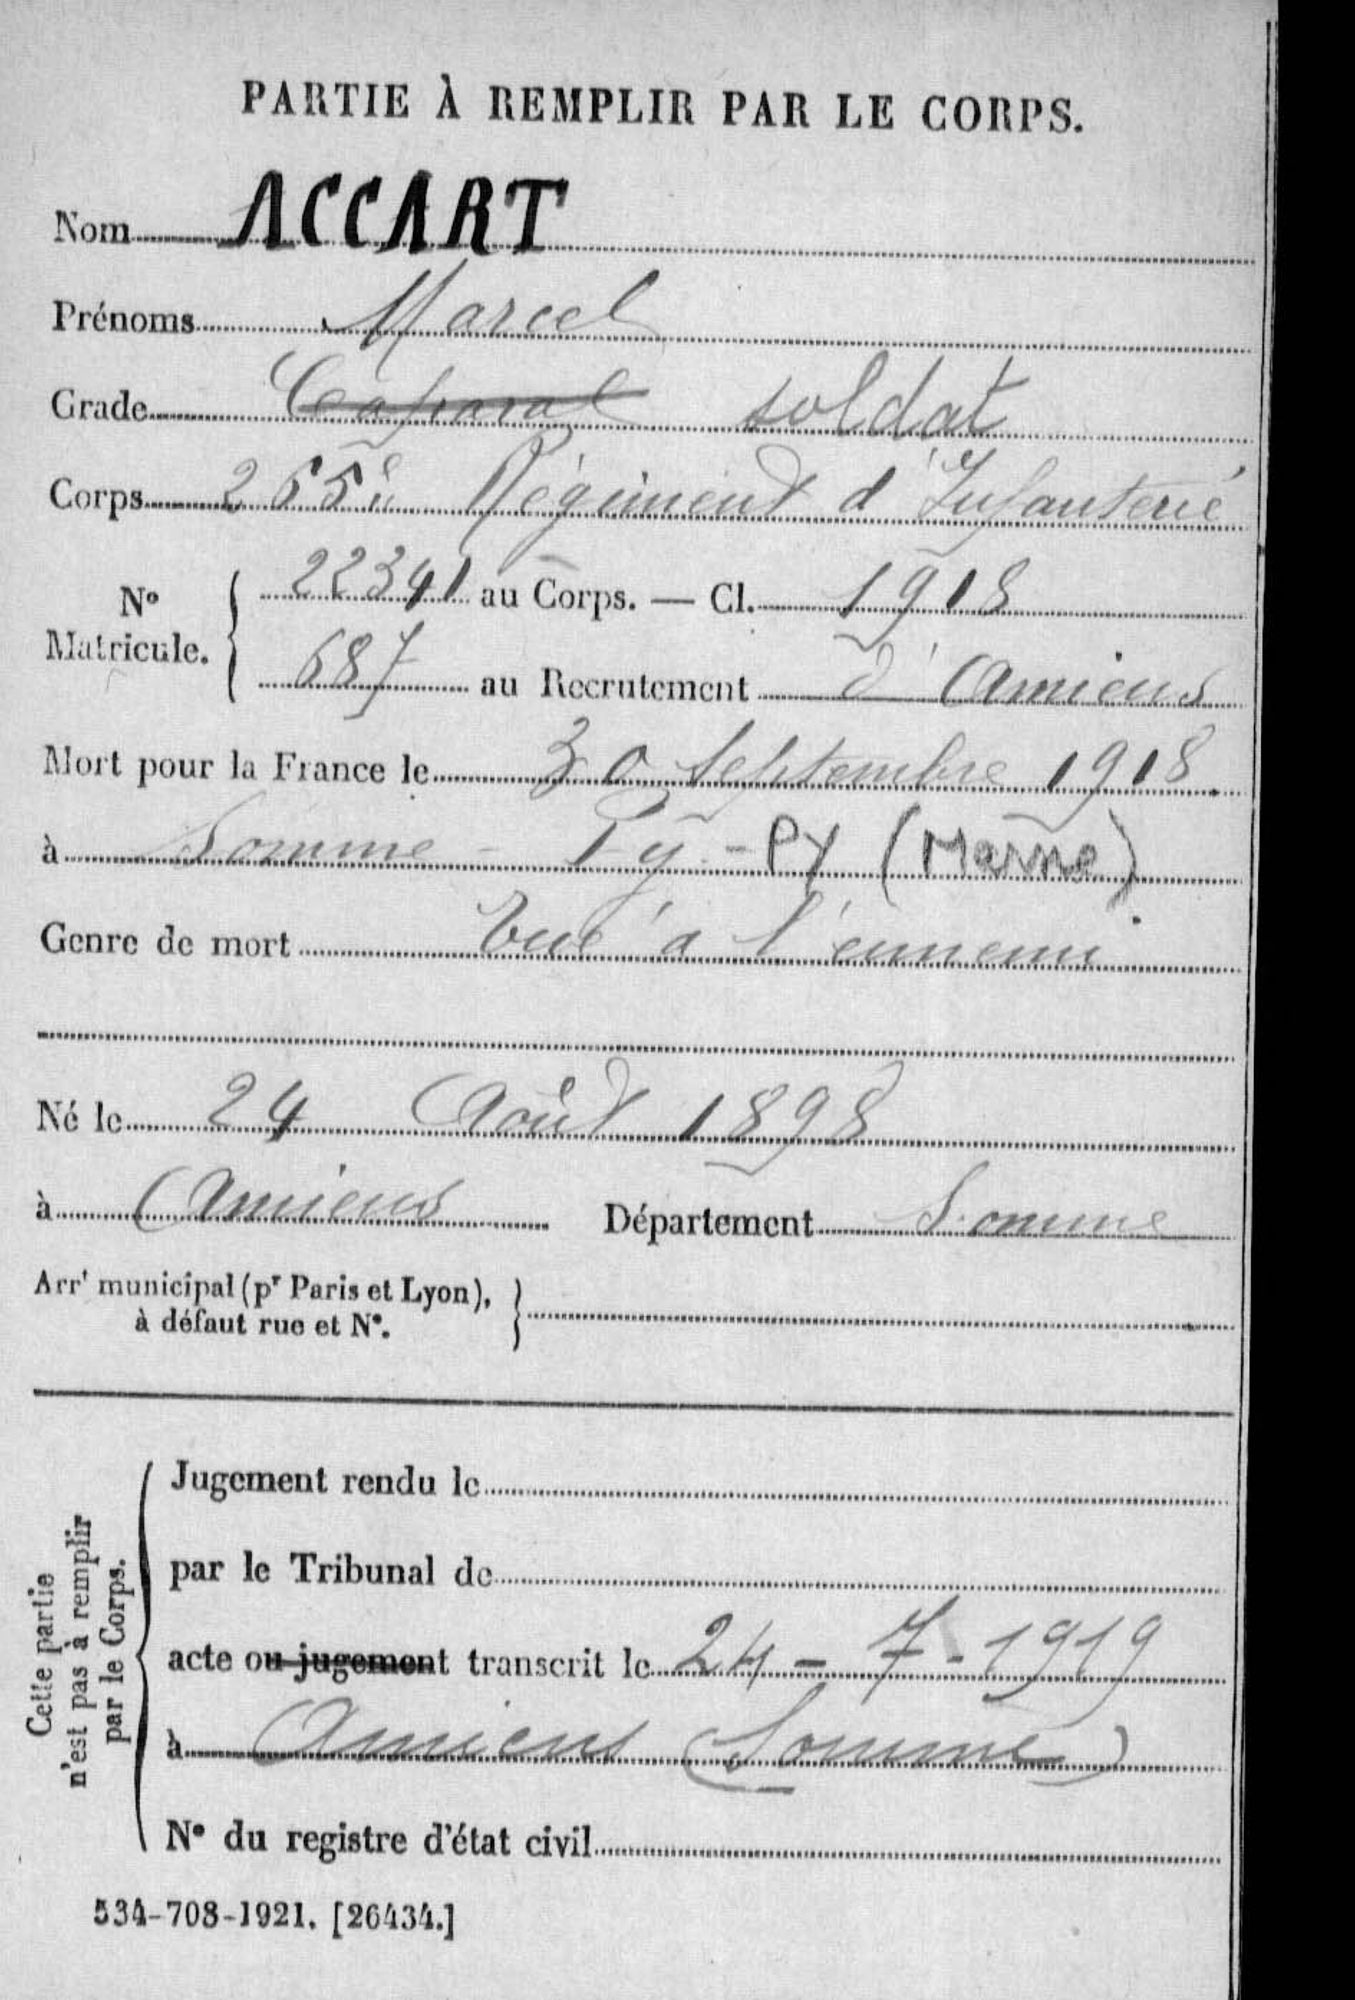 PARTIE À REMPLIR PAR LE CORPS.
Nom ACCART
Prénoms Marcel
Grade Caporal soldat
Corps 265è Régiment d'Infanterie
N° Matricule. { 22341 au Corps. — Cl. 1918
687 au Recrutement d'Amiens
Mort pour la France le 30 Septembre 1918
à Somme - Py - PY (Marne)
Genre de mort Tué à l'ennemi
Né le 24 Août 1898
à Amiens Département Somme
Arrt municipal (pr Paris et Lyon),
à défaut rue et N°.
Cette partie
n'est pas à remplir
par le Corps.
Jugement rendu le
par le Tribunal de
acte ou jugement transcrit le 24 - 7 - 1919
à Amiens (Somme)
N° du registre d'état civil
534-708-1921. [26434.]